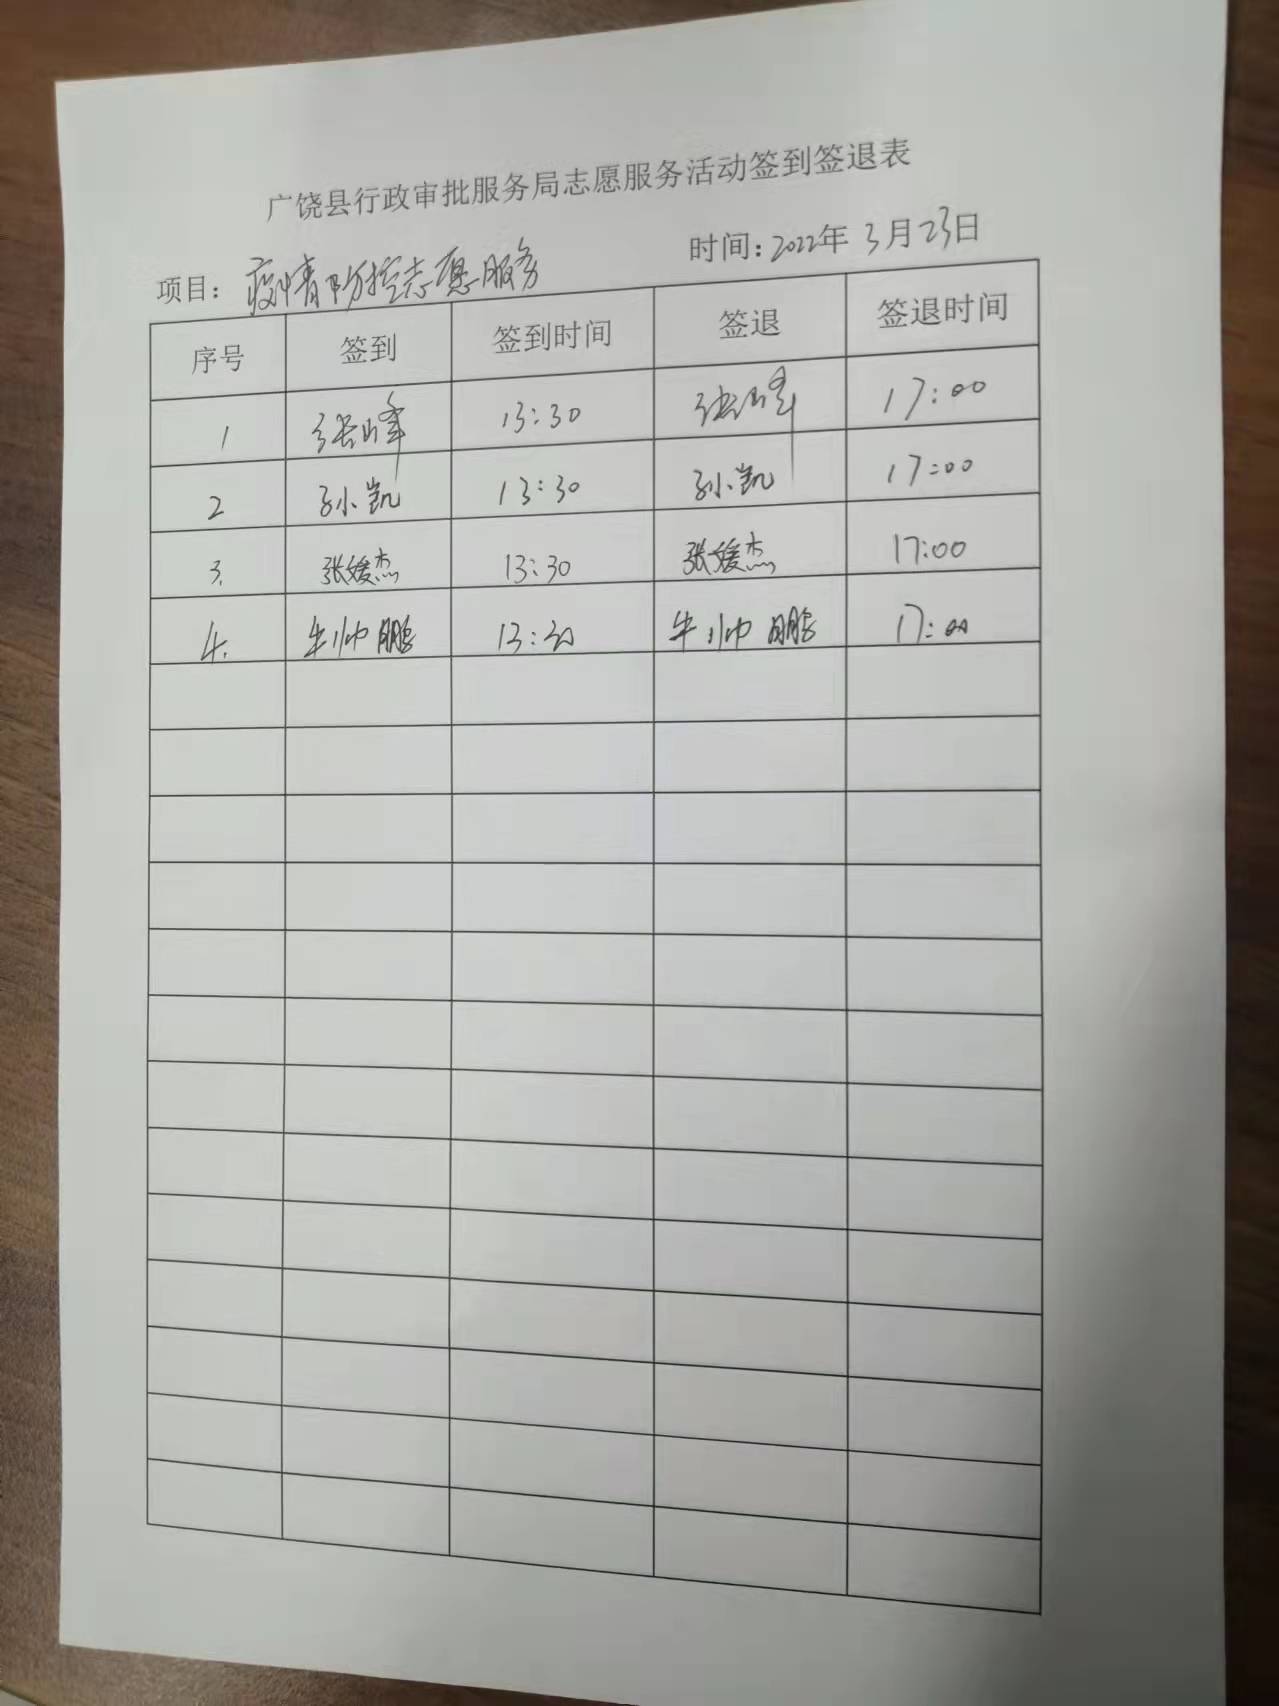 广饶县行政审批服务局志愿服务活动签到签退表
项目：疫情防控志愿服务 时间：2022年 3月23日
序号 签到 签到时间 签退 签退时间
1 张峰 13:30 张峰 17:00
2 孙小凯 13:30 孙小凯 17:00
3. 张媛杰 13:30 张媛杰 17:00
4. 牛帅鹏 13:30 牛帅鹏 17:00